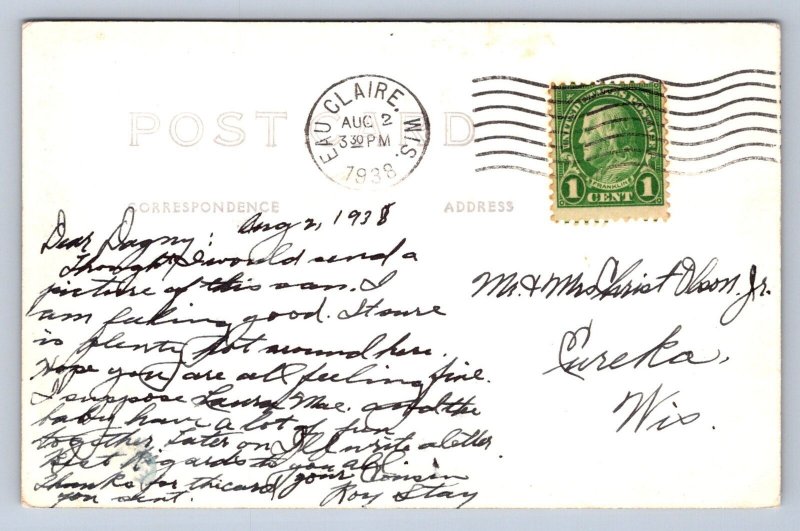 POST CARD
EAU CLAIRE, WIS.
AUG 2
3 30 PM
1938
UNITED STATES POSTAGE
FRANKLIN
1 CENT 1
CORRESPONDENCE
ADDRESS
Aug 2, 1938
Dear Dagny:
Thought I would send a
picture of this san. I
am feeling good. It sure
is plenty hot around here.
Hope you are all feeling fine.
I suppose Laura Mae. and the
baby have a lot of fun
together. Later on I'll write a letter.
Best Regards to you all
Thanks for the card your Cousin
you sent. Roy Stay
Mr. & Mrs Christ Olson. Jr.
Eureka,
Wis.